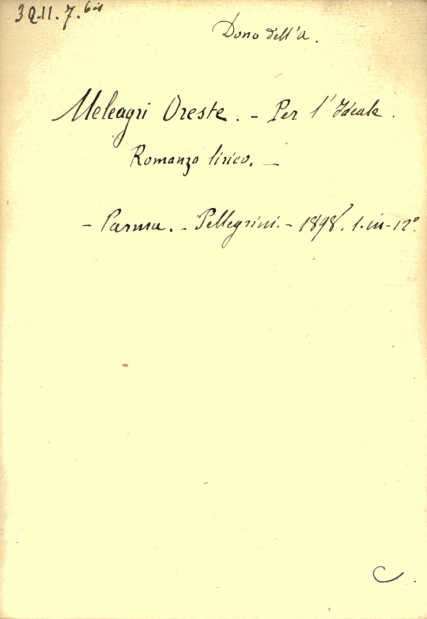 3Q.II.7.bis
Dono dell'a.
Meleagri Oreste. - Per l'Ideale.
Romanzo lirico. -
- Parma. - Pellegrini. - 1898. 1. in-12°
C.